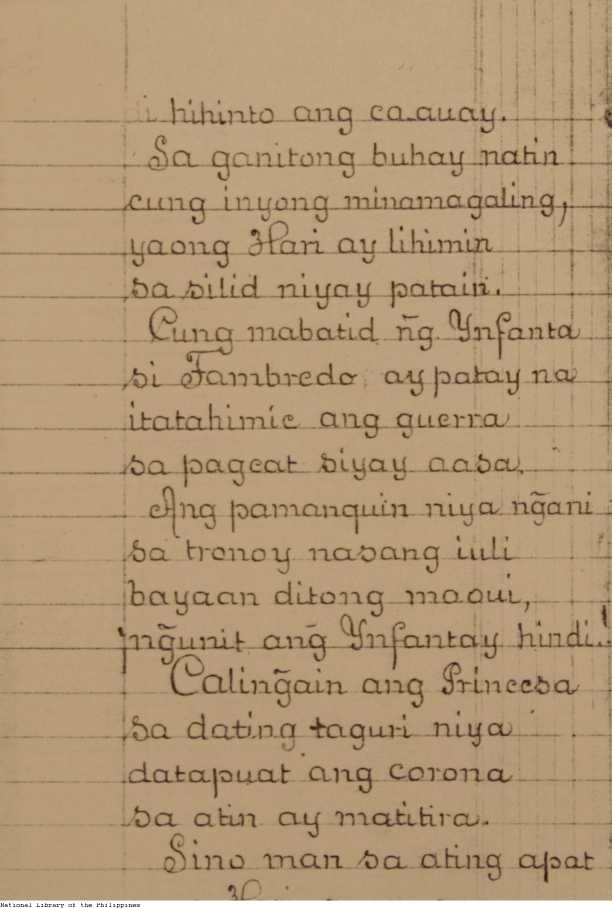 di hihinto ang ca-auay.
Sa ganitong buhay natin
cung inyong minamagaling,
yaong Hari ay lihimin
sa silid niyay patain.
Cung mabatid n͠g Ynfanta
si Fambredo ay patay na
itatahimic ang guerra
sa pagcat siyay aasa.
Ang pamanquin niya ng̃ani
sa tronoy nasang iuli
bayaan ditong maoui,
ng̃unit ang̃ Ynfantay hindi.
Caling̃ain ang Princesa
sa dating taguri niya
datapuat ang corona
sa atin ay matitira.
Sino man sa ating apat
National Library of the Philippines